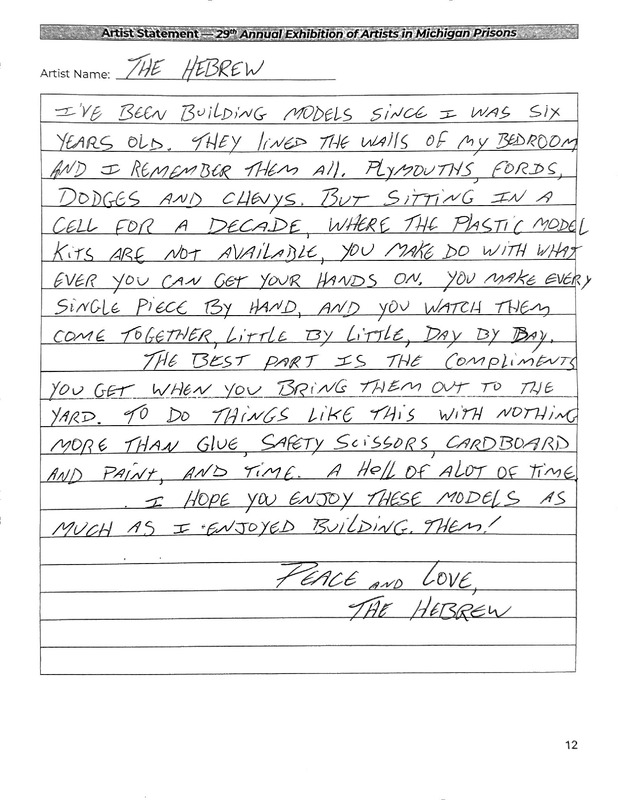 Artist Statement — 29th Annual Exhibition of Artists in Michigan Prisons
Artist Name: THE HEBREW
I'VE BEEN BUILDING MODELS SINCE I WAS SIX
YEARS OLD. THEY LINED THE WALLS OF MY BEDROOM
AND I REMEMBER THEM ALL. PLYMOUTHS, FORDS,
DODGES AND CHEVYS. BUT SITTING IN A
CELL FOR A DECADE, WHERE THE PLASTIC MODEL
KITS ARE NOT AVAILABLE, YOU MAKE DO WITH WHAT
EVER YOU CAN GET YOUR HANDS ON. YOU MAKE EVERY
SINGLE PIECE BY HAND, AND YOU WATCH THEM
COME TOGETHER, LITTLE BY LITTLE, DAY BY DAY.
THE BEST PART IS THE COMPLIMENTS
YOU GET WHEN YOU BRING THEM OUT TO THE
YARD. TO DO THINGS LIKE THIS WITH NOTHING
MORE THAN GLUE, SAFETY SCISSORS, CARDBOARD
AND PAINT, AND TIME. A HELL OF ALOT OF TIME.
I HOPE YOU ENJOY THESE MODELS AS
MUCH AS I ENJOYED BUILDING THEM!
PEACE AND LOVE,
THE HEBREW
12